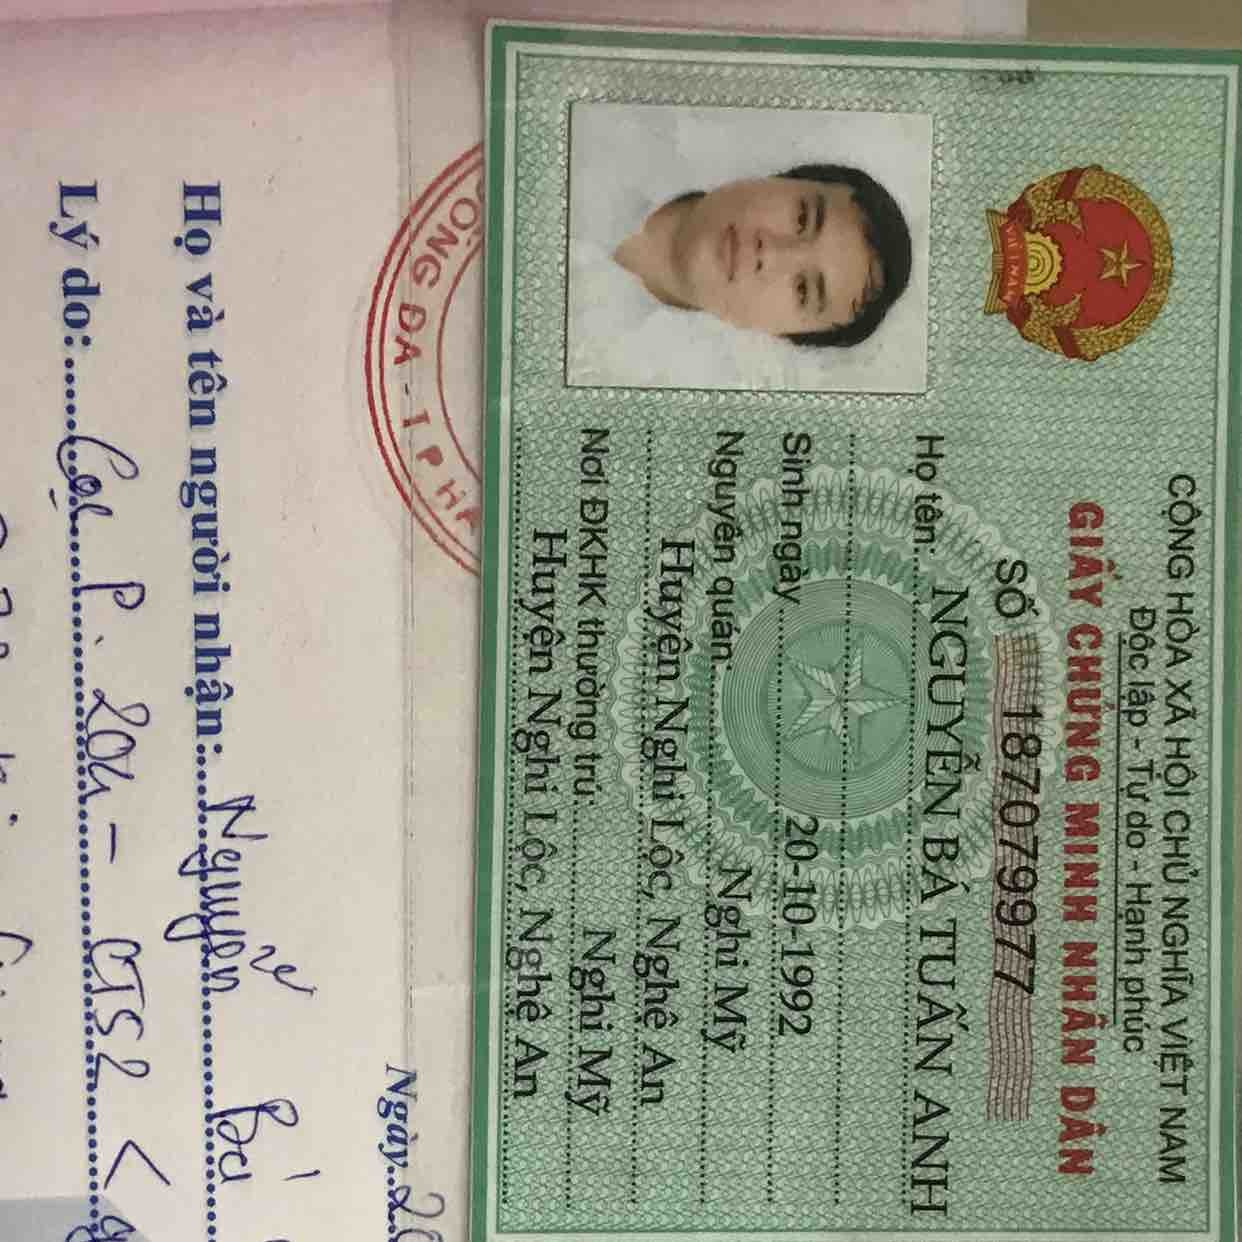 CỘNG HÒA XÃ HỘI CHỦ NGHĨA VIỆT NAM
Độc lập - Tự do - Hạnh phúc
GIẤY CHỨNG MINH NHÂN DÂN
SỐ 187079977
Họ tên: NGUYỄN BÁ TUẤN ANH
Sinh ngày 20-10-1992
Nguyên quán: Nghi Mỹ
Huyện Nghi Lộc, Nghệ An
Nơi ĐKHK thường trú: Nghi Mỹ
Huyện Nghi Lộc, Nghệ An
VIỆT NAM
ĐỐNG ĐA - TP HÀ
Ngày 20
Họ và tên người nhận: Nguyễn Bá
Lý do: Cọc P. 204 -